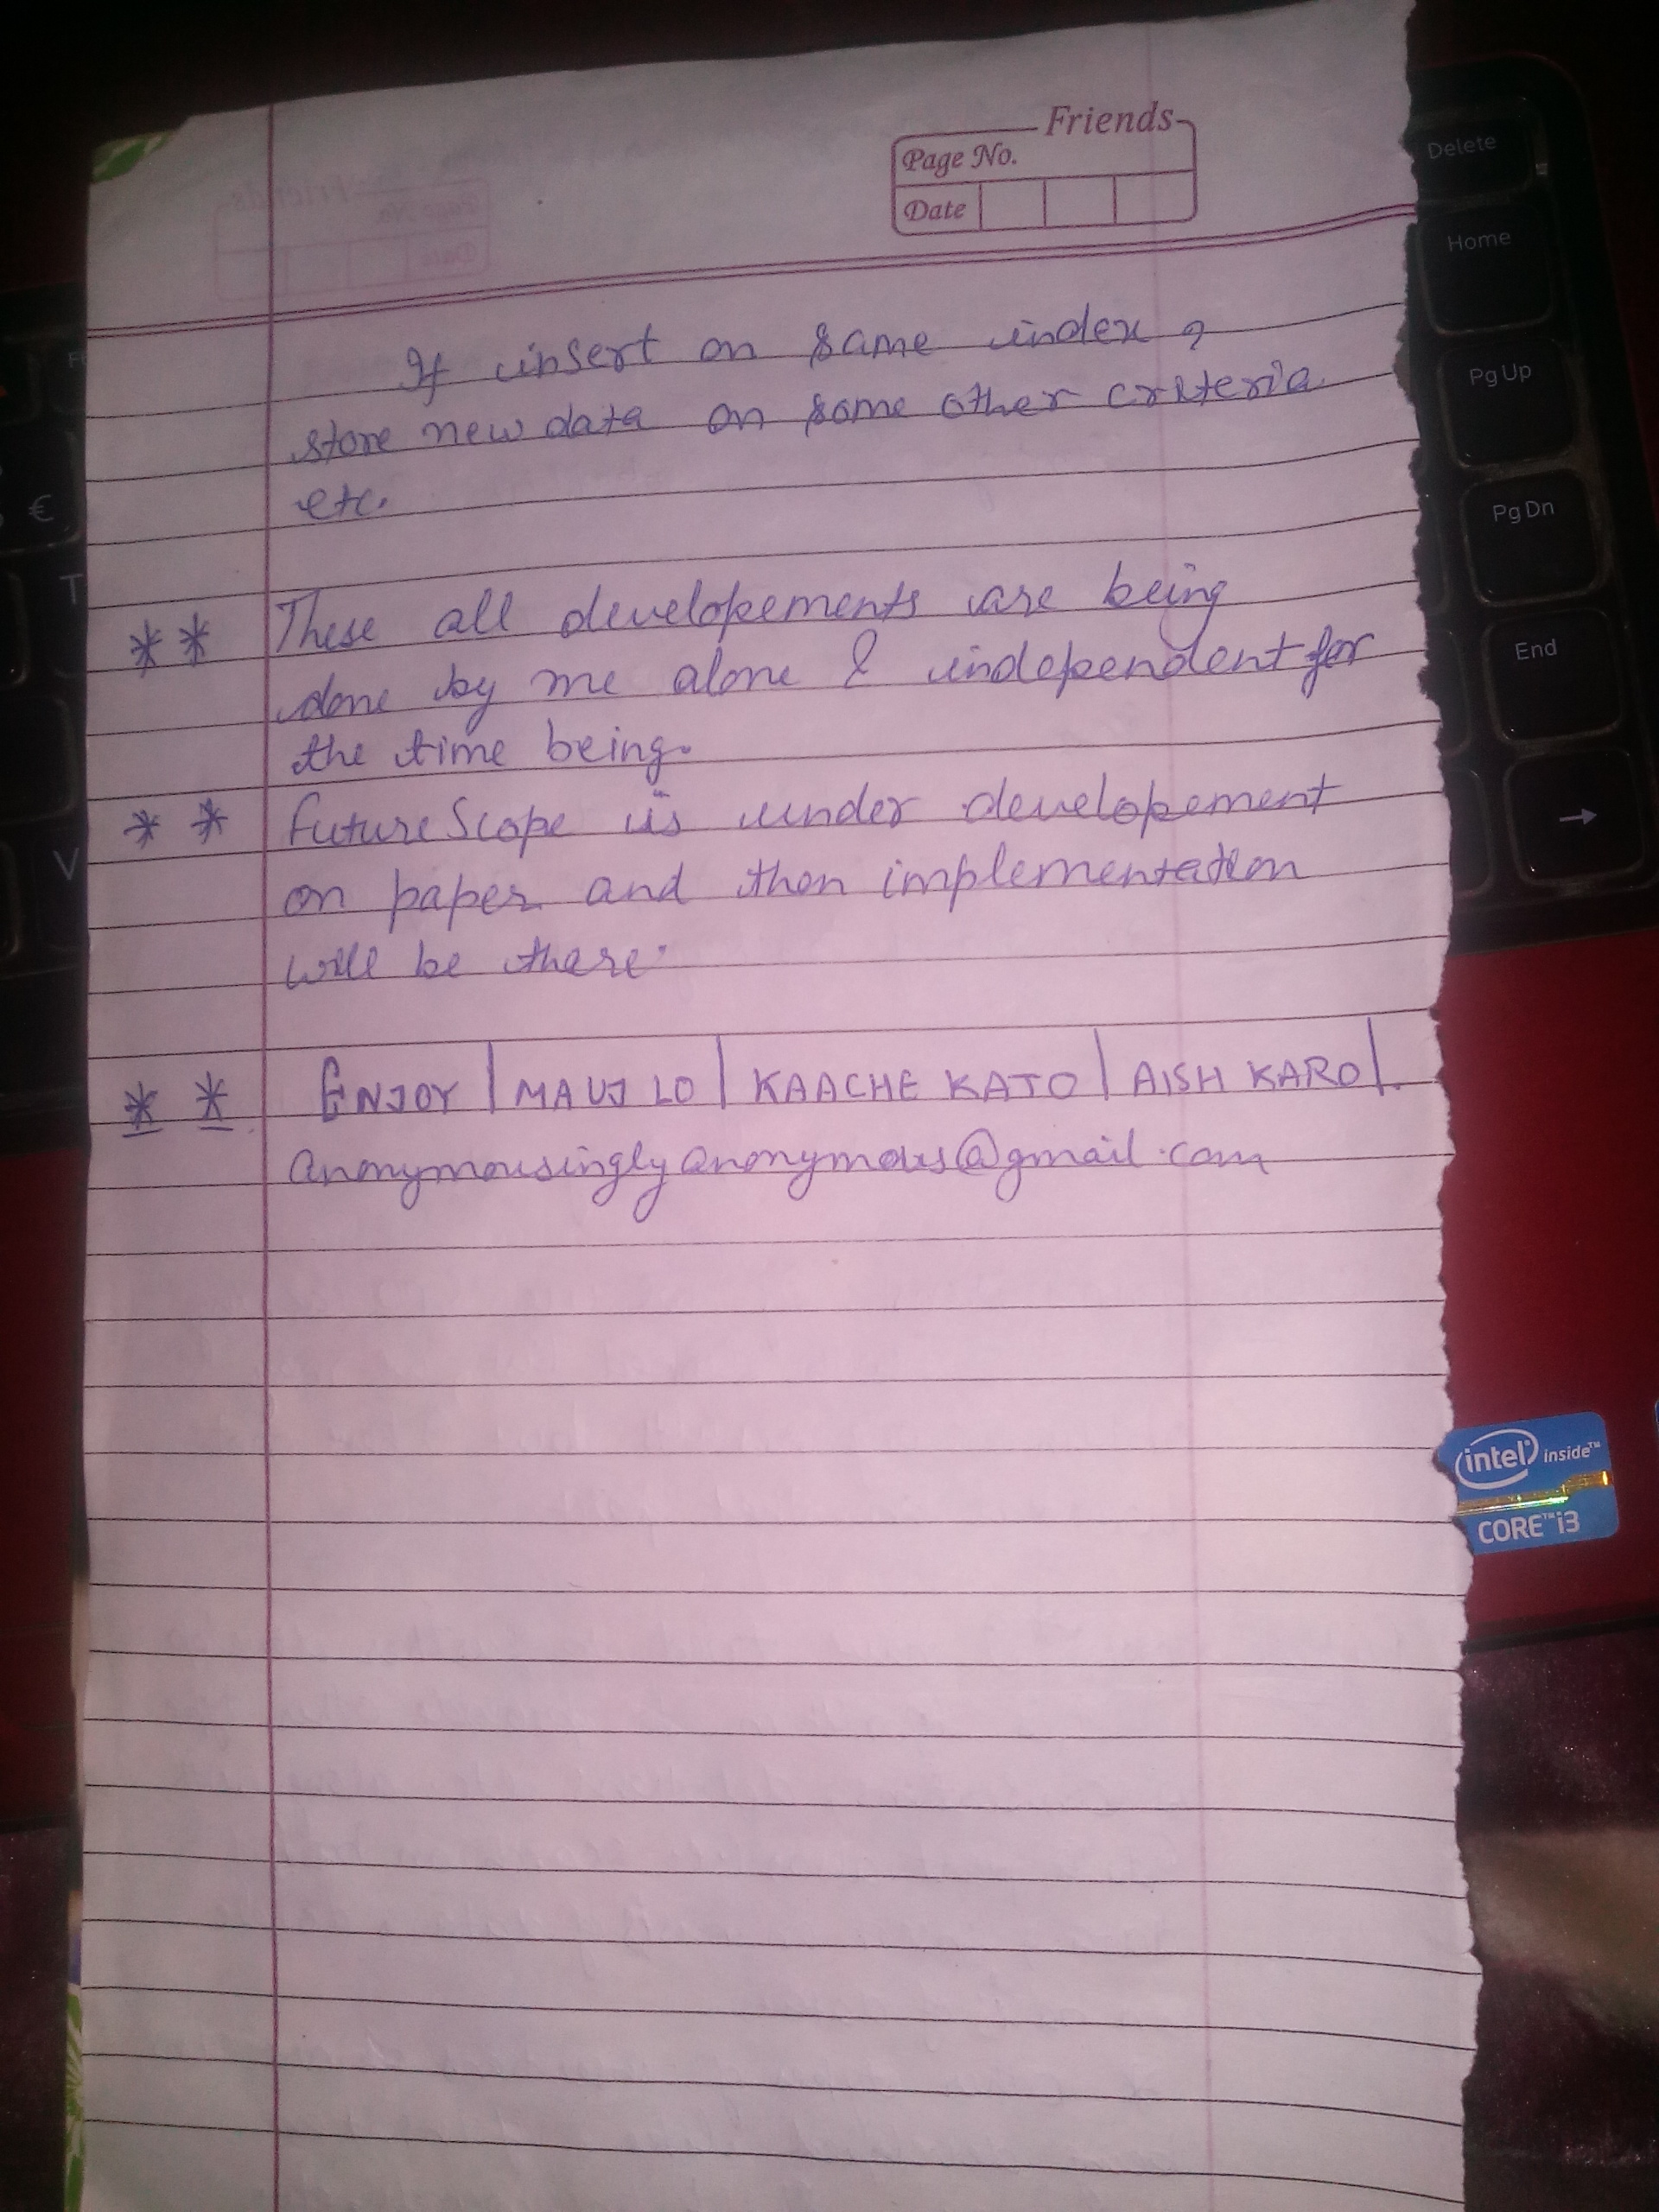 Friends
Page No.
Date
If insert on same index,
store new data on some other criteria
etc.
** These all developements are being
done by me alone & independent for
the time being.
** Future Scope is under developement
on paper and then implementation
will be there.
** ENJOY | MAUJ LO | KAACHE KATO | AISH KARO |.
anonymousinglyanonymous@gmail.com
Delete
Home
PgUp
PgDn
End
→
€
T
V
intel inside™
CORE™ i3